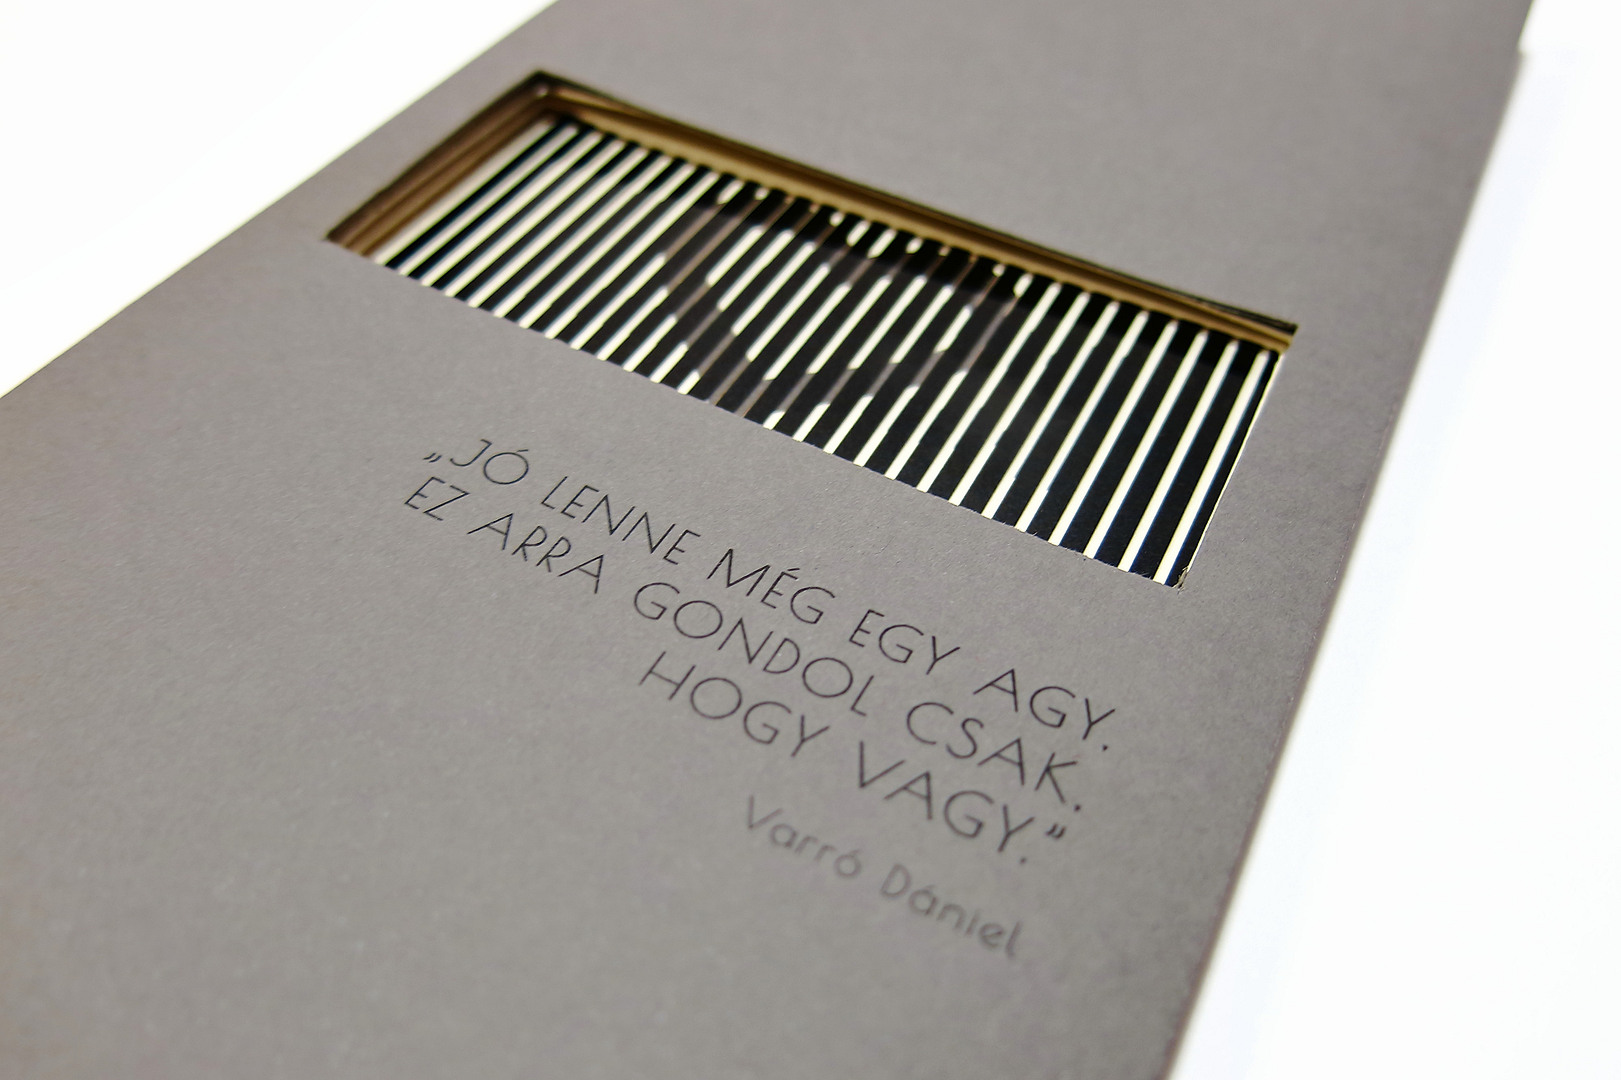 „JÓ LENNE MÉG EGY AGY.
EZ ARRA GONDOL CSAK.
HOGY VAGY.”
Varró Dániel